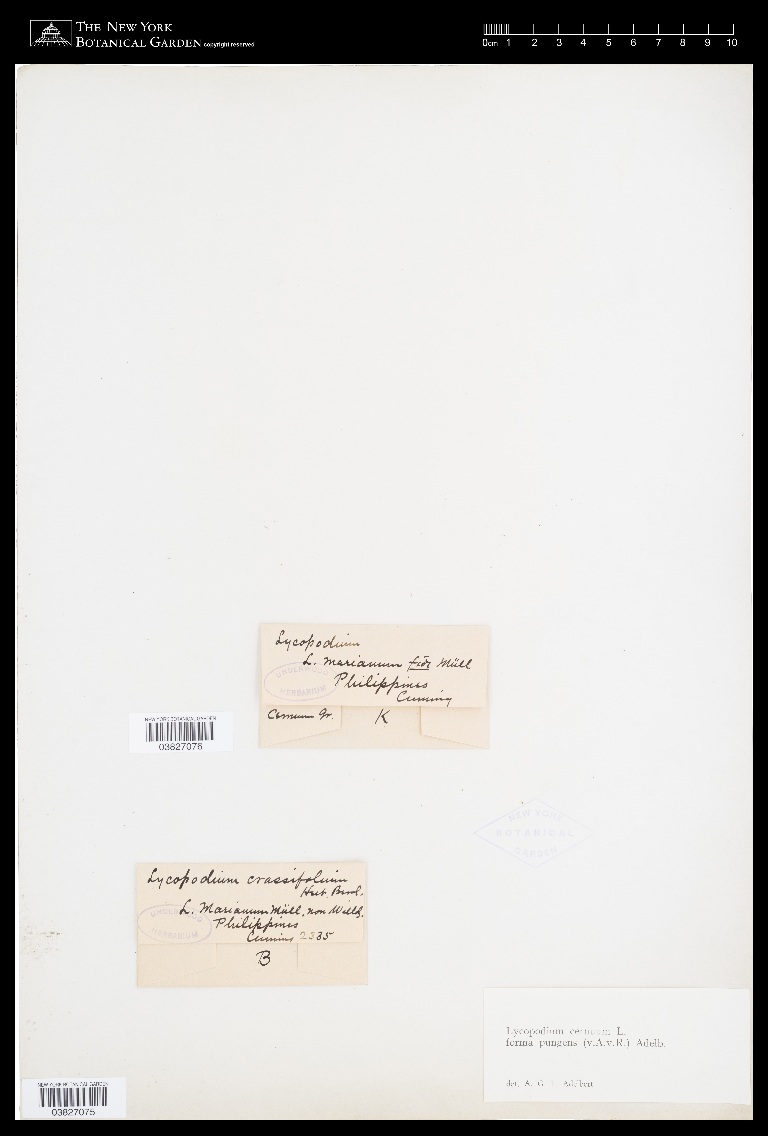 THE NEW YORK
BOTANICAL GARDEN copyright reserved
0cm 1 2 3 4 5 6 7 8 9 10
Lycopodium
L. marianum fide Müll
Philippines
Cuming
UNDERWOOD
HERBARIUM
Cernuum Gr. K
NEW YORK BOTANICAL GARDEN
03827076
NEW YORK
BOTANICAL
GARDEN
Lycopodium crassifolium
Herb. Berol.
L. Marianum Müll, non Willd.
Philippines
Cuming 2335
UNDERWOOD
HERBARIUM
B
Lycopodium cernuum L.
forma pungens (v.A.v.R.) Adelb.
det. A. G. L. Adelbert
NEW YORK BOTANICAL GARDEN
03827075